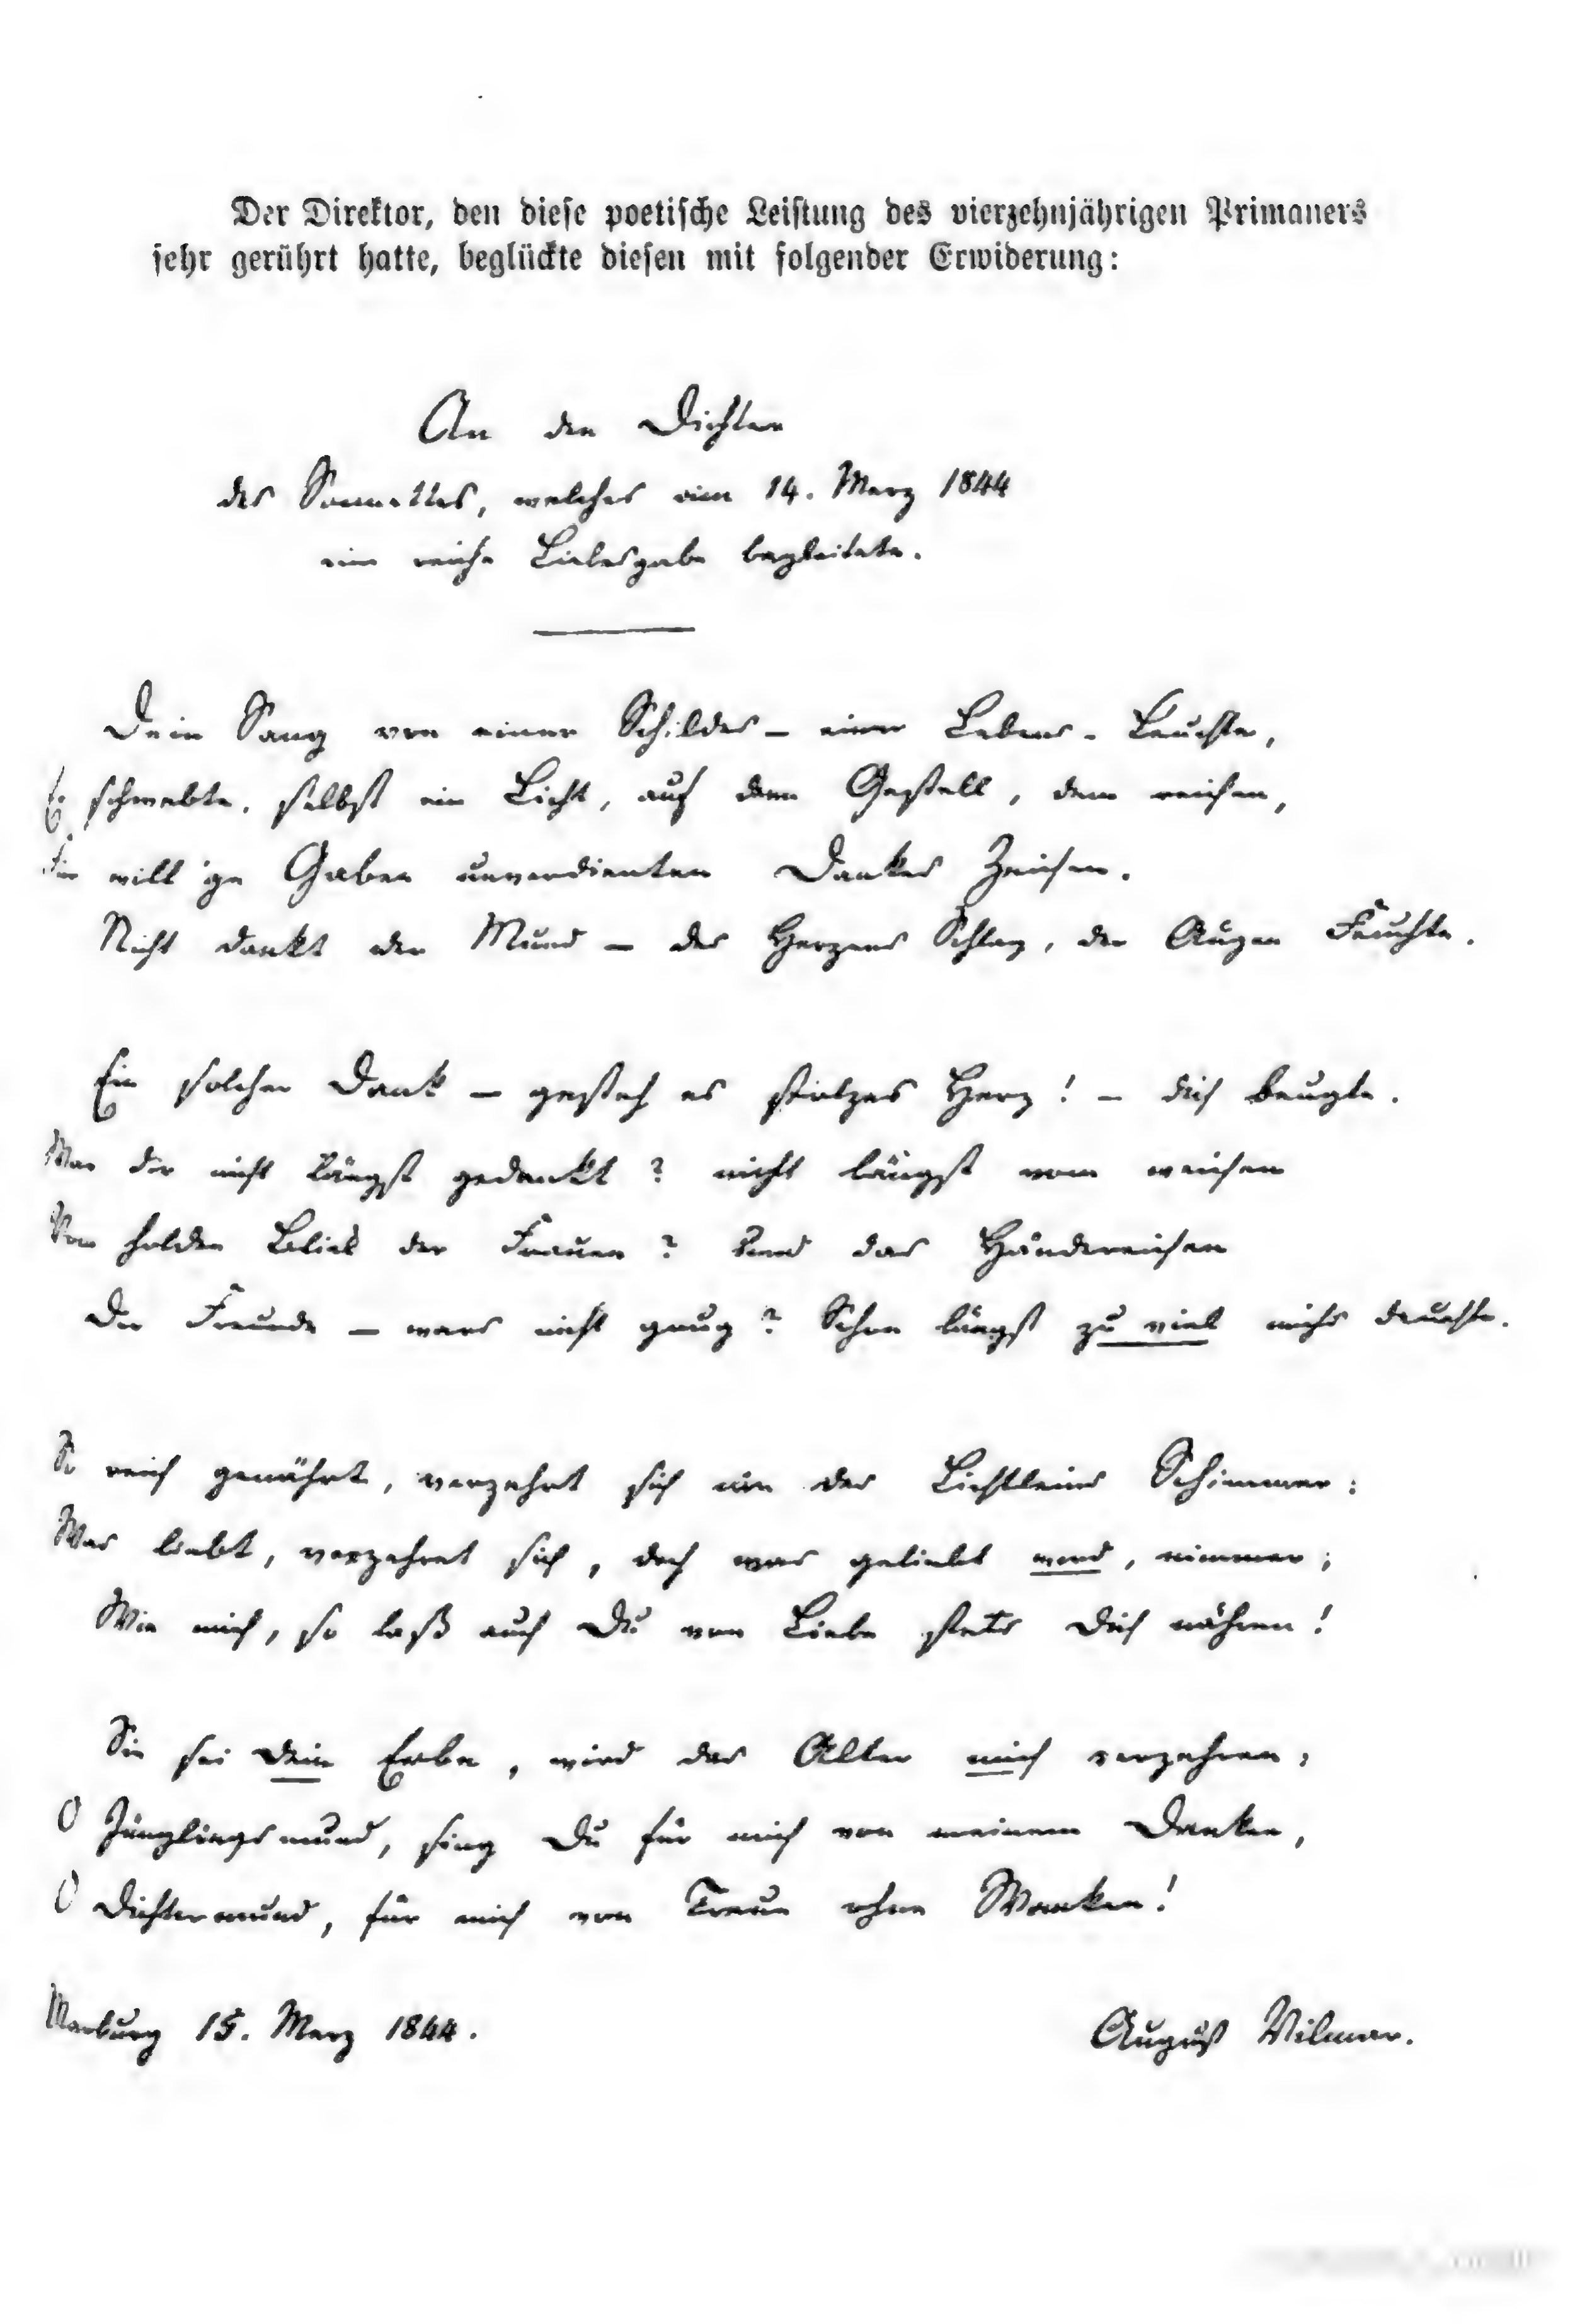 Der Direktor, den diese poetische Leistung des vierzehnjährigen Primaners
sehr gerührt hatte, beglückte diesen mit folgender Erwiderung:
An den Dichter
des Sonettes, welches am 14. Merz 1844
eine reiche Liebesgabe begleitete.
Dein Sang von einer Schildes – einer Lebens-Leuchte,
Er schwebte, selbst ein Licht, auf dem Gestell, dem reichen,
Für will'ge Gaben unverdienten Dankes Zeichen.
Nicht dankt der Mund – des Herzens Schlag, der Augen Feuchte.
Ein solcher Dank – gesteh es stolzes Herz! – dich beugte.
War dir nicht längst gedankt? nicht längst vom weichen
Vom holden Blick der Frauen? Und das Händereichen
Der Freunde – wars nicht gnug? Schon längst zu viel michs deuchte.
So reich genährt, verzehrt sich nie des Lichtleins Schimmer:
Was liebt, verzehret sich, doch was geliebt wird, nimmer;
Wie mich, so laß auch Du von Liebe stets Dich nähren!
Sie sei Dein Erbe, wird das Alter mich verzehren,
O Jünglingsmund, sing Du für mich von meinem Danken,
O Dichtermund, für mich von Treue ohne Wanken!
Marburg 15. Merz 1844.
August Vilmar.